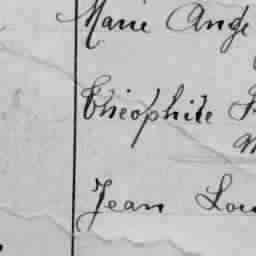 Marie Ange
Théophile
Jean Lou